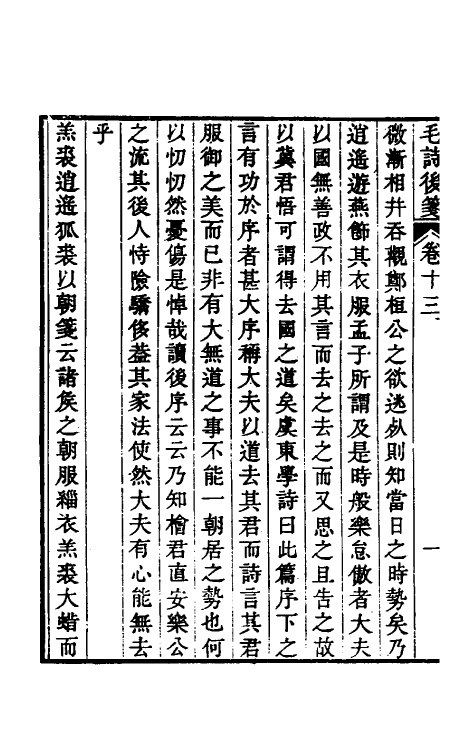 毛詩後箋 卷十三 一
微漸相并吞觀鄭桓公之欲逃死則知當日之時勢矣乃
逍遙遊燕飾其衣服孟子所謂及是時般樂怠傲者大夫
以國無善政不用其言而去之去之而又思之且告之故
以冀君悟可謂得去國之道矣虞東學詩曰此篇序下之
言有功於序者甚大序稱大夫以道去其君而詩言其君
服御之美而已非有大無道之事不能一朝居之勢也何
以忉忉然憂傷是悼哉讀後序云云乃知檜君直安樂公
之流其後人恃險驕侈葢其家法使然大夫有心能無去
乎
羔裘逍遙狐裘以朝箋云諸矦之朝服緇衣羔裘大蜡而